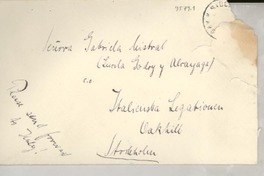 Señora Gabriela Mistral
(Lucila Godoy y Alcayaga)
Italienska Legationen
Oakhill
Stockholm
Please send forward
to Italy!